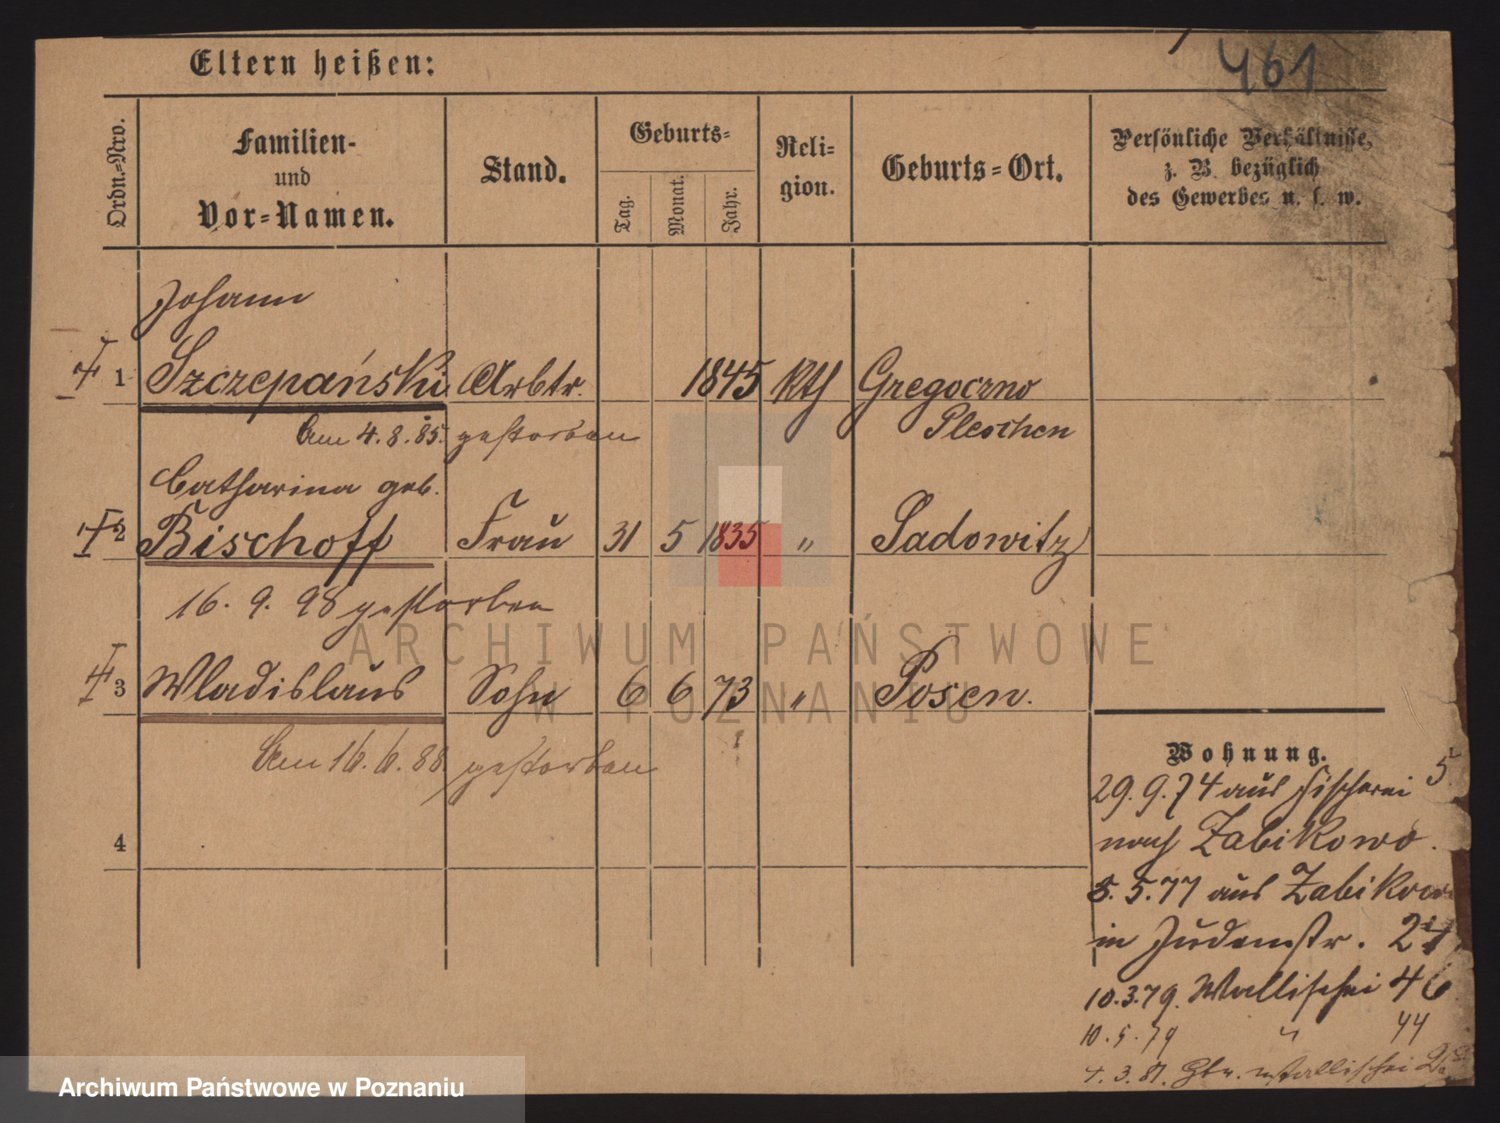 461
Eltern heißen:
Ordn.-Nro.
Familien-
und
Vor-Namen.
Stand.
Geburts-
Tag.
Monat.
Jahr.
Reli-
gion.
Geburts-Ort.
Persönliche Verhältnisse,
z. B. bezüglich
des Gewerbes u. s. w.
Johann
1 Szczepański Arbtr. 1845 Kth Gregoczno
Pleschen
Am 4.8.85. gestorben
Catharina geb.
2 Bischoff Frau 31 5 1835 " Sadowitz
16. 9. 98 gestorben
3 Wladislaus Sohn 6 6 73 " Posen.
Am 16.6.88 gestorben
4
Wohnung.
29.9.74 aus Fischerei 5
nach Zabikowo.
8.5.77 aus Zabikowo
in Judenstr. 24
10.3.79. Wallischei 46
10.5.79 " 44
4.3.81. Wallischei
ARCHIWUM PAŃSTWOWE
W POZNANIU
Archiwum Państwowe w Poznaniu